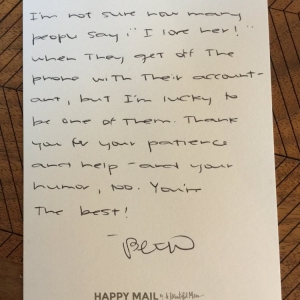 I'm not sure how many
people say, "I love her!"
when they get off the
phone with their account-
ant, but I'm lucky to
be one of them. Thank
you for your patience
and help - and your
humor, too. You're
the best!
HAPPY MAIL